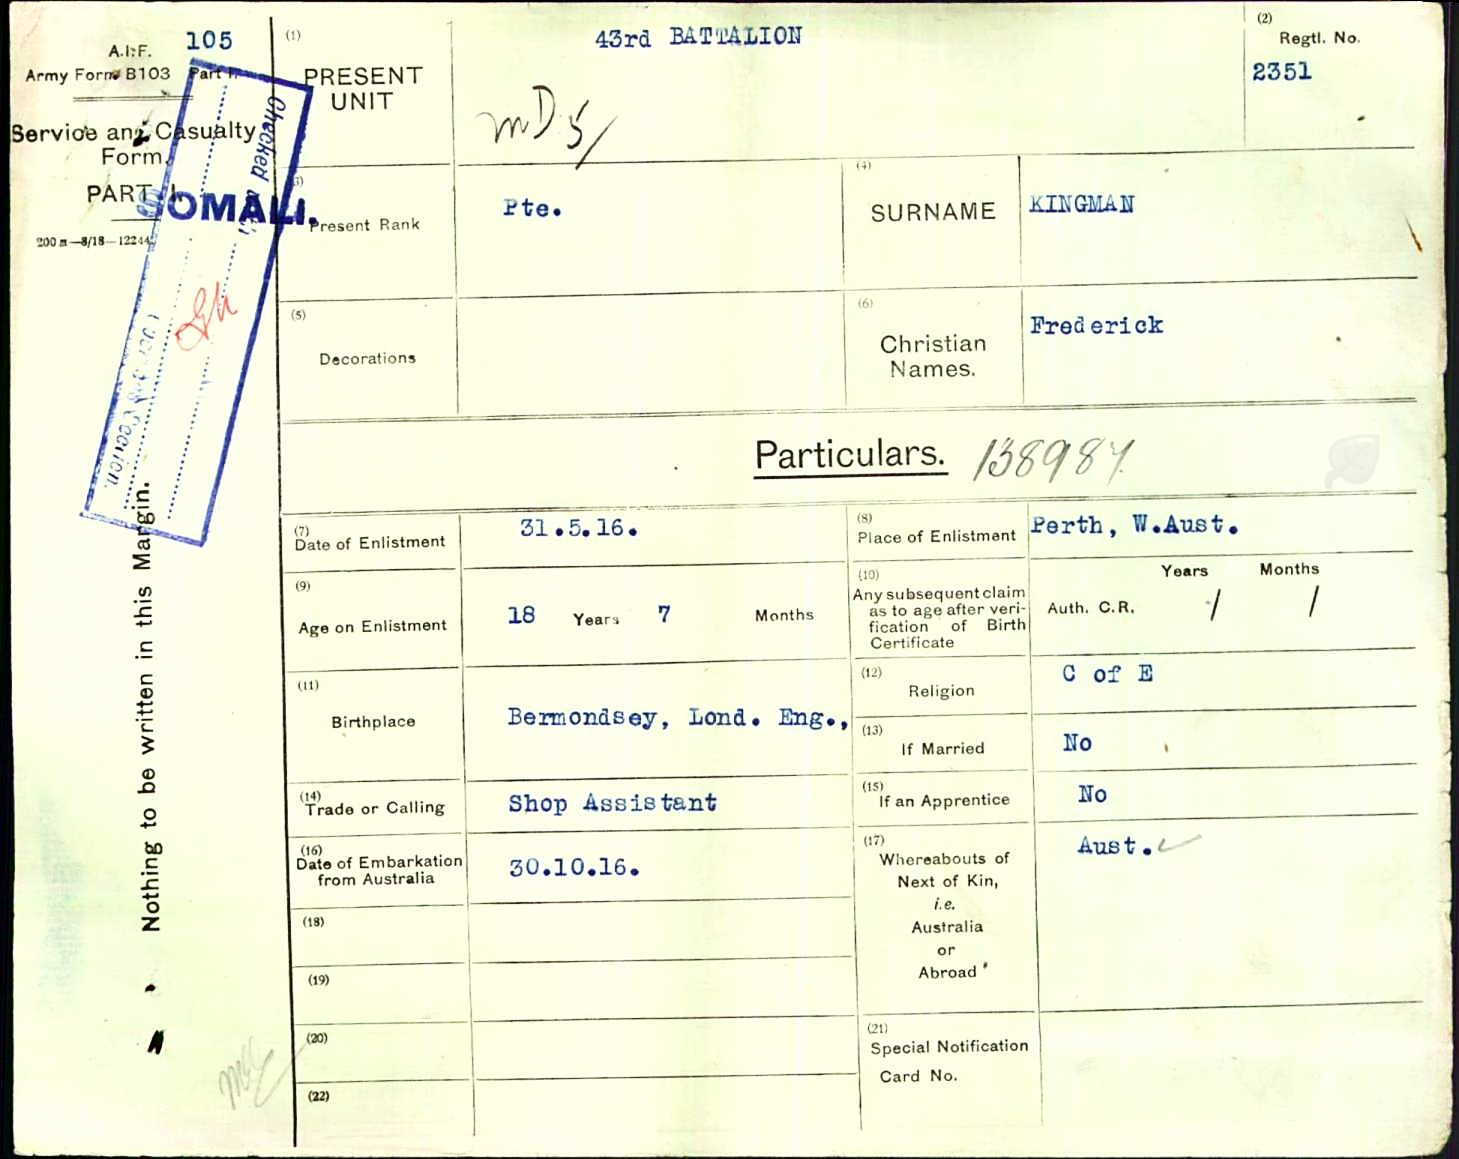 105
A.I.F.
Army Form B103 Part I.
Service and Casualty
Form.
PART I.
200 m—8/18—12244
SOMALI.
Checked
Nothing to be written in this Margin.
(1)
PRESENT
UNIT
43rd BATTALION
MD 5/
(2)
Regtl. No.
2351
(3)
Present Rank
Pte.
(4)
SURNAME
KINGMAN
(5)
Decorations
(6)
Christian
Names.
Frederick
Particulars. 138987
(7)
Date of Enlistment
31.5.16.
(8)
Place of Enlistment
Perth, W.Aust.
(9)
Age on Enlistment
18 Years 7 Months
(10)
Any subsequent claim
as to age after veri-
fication of Birth
Certificate
Years Months
Auth. C.R. / /
(11)
Birthplace
Bermondsey, Lond. Eng.,
(12)
Religion
C of E
(13)
If Married
No
(14)
Trade or Calling
Shop Assistant
(15)
If an Apprentice
No
(16)
Date of Embarkation
from Australia
30.10.16.
(17)
Whereabouts of
Next of Kin,
i.e.
Australia
or
Abroad
Aust.
(18)
(19)
(20)
(21)
Special Notification
Card No.
(22)